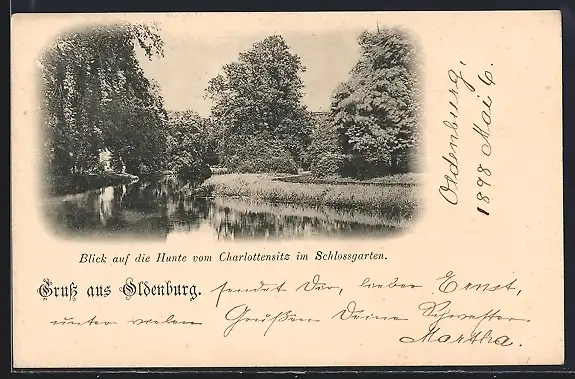 Oldenburg,
1898 Mai 6.
Blick auf die Hunte vom Charlottensitz im Schlossgarten.
Gruß aus Oldenburg. sendet Dir, lieber Ernst,
unter vielen Grüßen Deine Schwester
Martha.